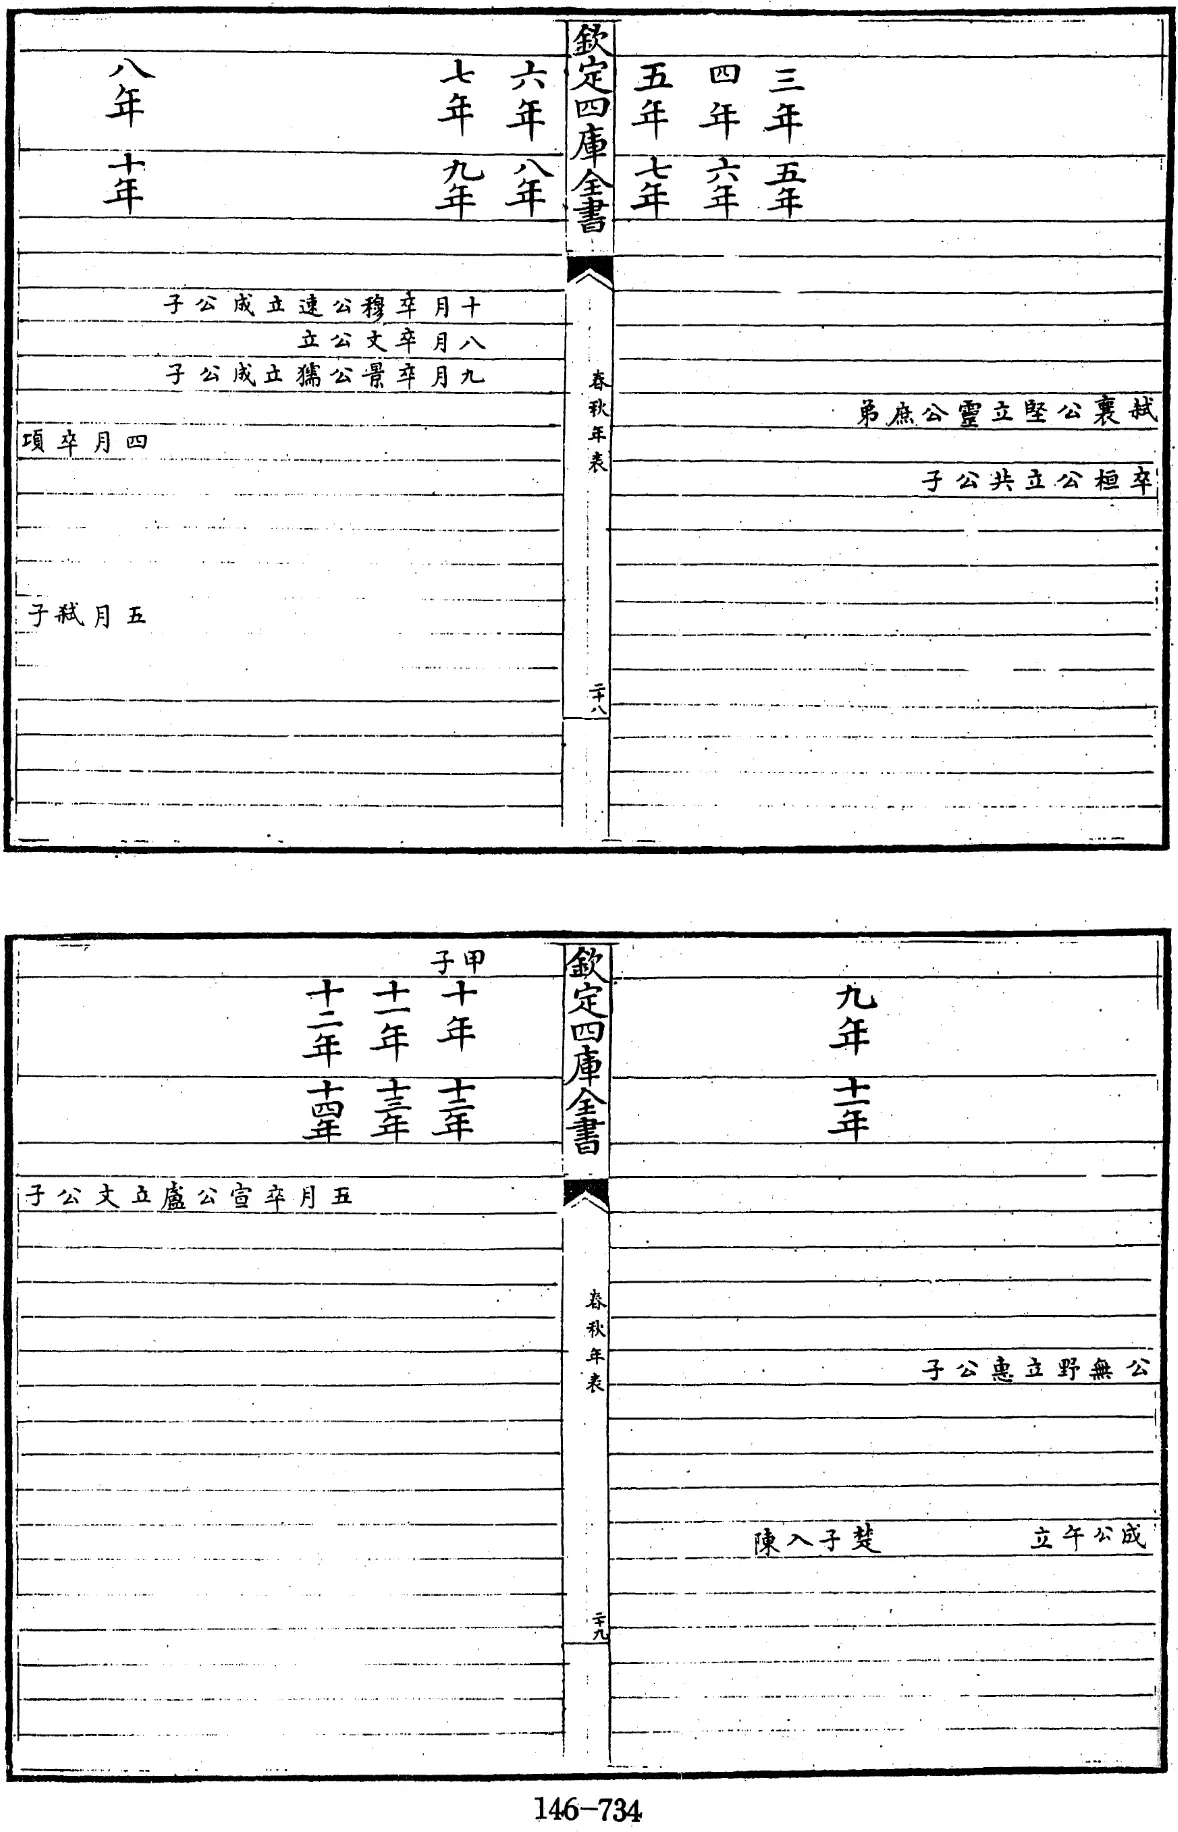 三年 五年
四年 六年
五年 七年
弑襄公堅立靈公庶弟
卒桓公立共公子
欽定四庫全書
春秋年表
二十八
六年 八年
七年 九年
八年 十年
十月卒穆公速立成公子
八月卒文公立
九月卒景公獳立成公子
四月卒項
五月弑子
九年 十一年
公無野立惠公子
成公午立 楚子入陳
欽定四庫全書
春秋年表
二十九
甲子
十年 十二年
十一年 十三年
十二年 十四年
五月卒宣公盧立文公子
146-734